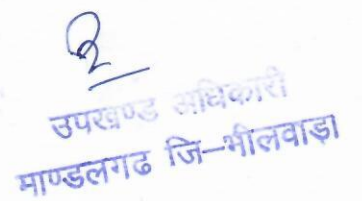 उपखण्ड अधिकारी
माण्डलगढ जि–भीलवाड़ा